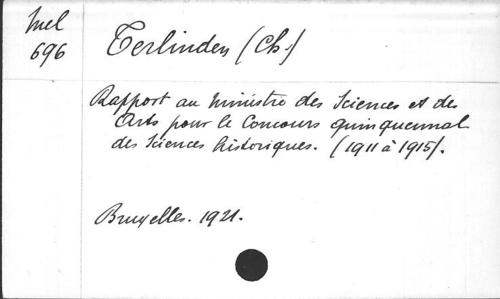 Mel
696
Terlinden (Ch.)
Rapport au Ministre des Sciences et des
Arts pour le Concours quinquennal
des Sciences historiques. (1911 à 1915).
Bruxelles. 1921.